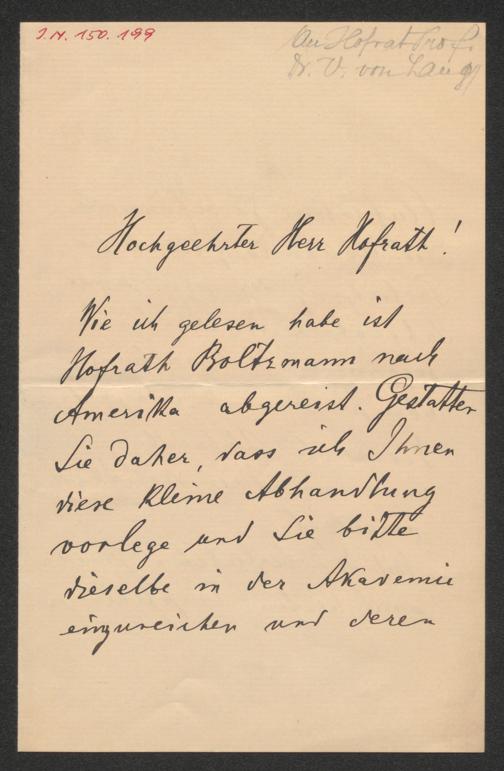 I.N. 150.199
An Hofrat Prof.
Dr. V. von Lang
Hochgeehrter Herr Hofrath!
Wie ich gelesen habe ist
Hofrath Boltzmann nach
Amerika abgereist. Gestatten
Sie daher, dass ich Ihnen
diese kleine Abhandlung
vorlege und Sie bitte
dieselbe in der Akademie
einzureichen und deren